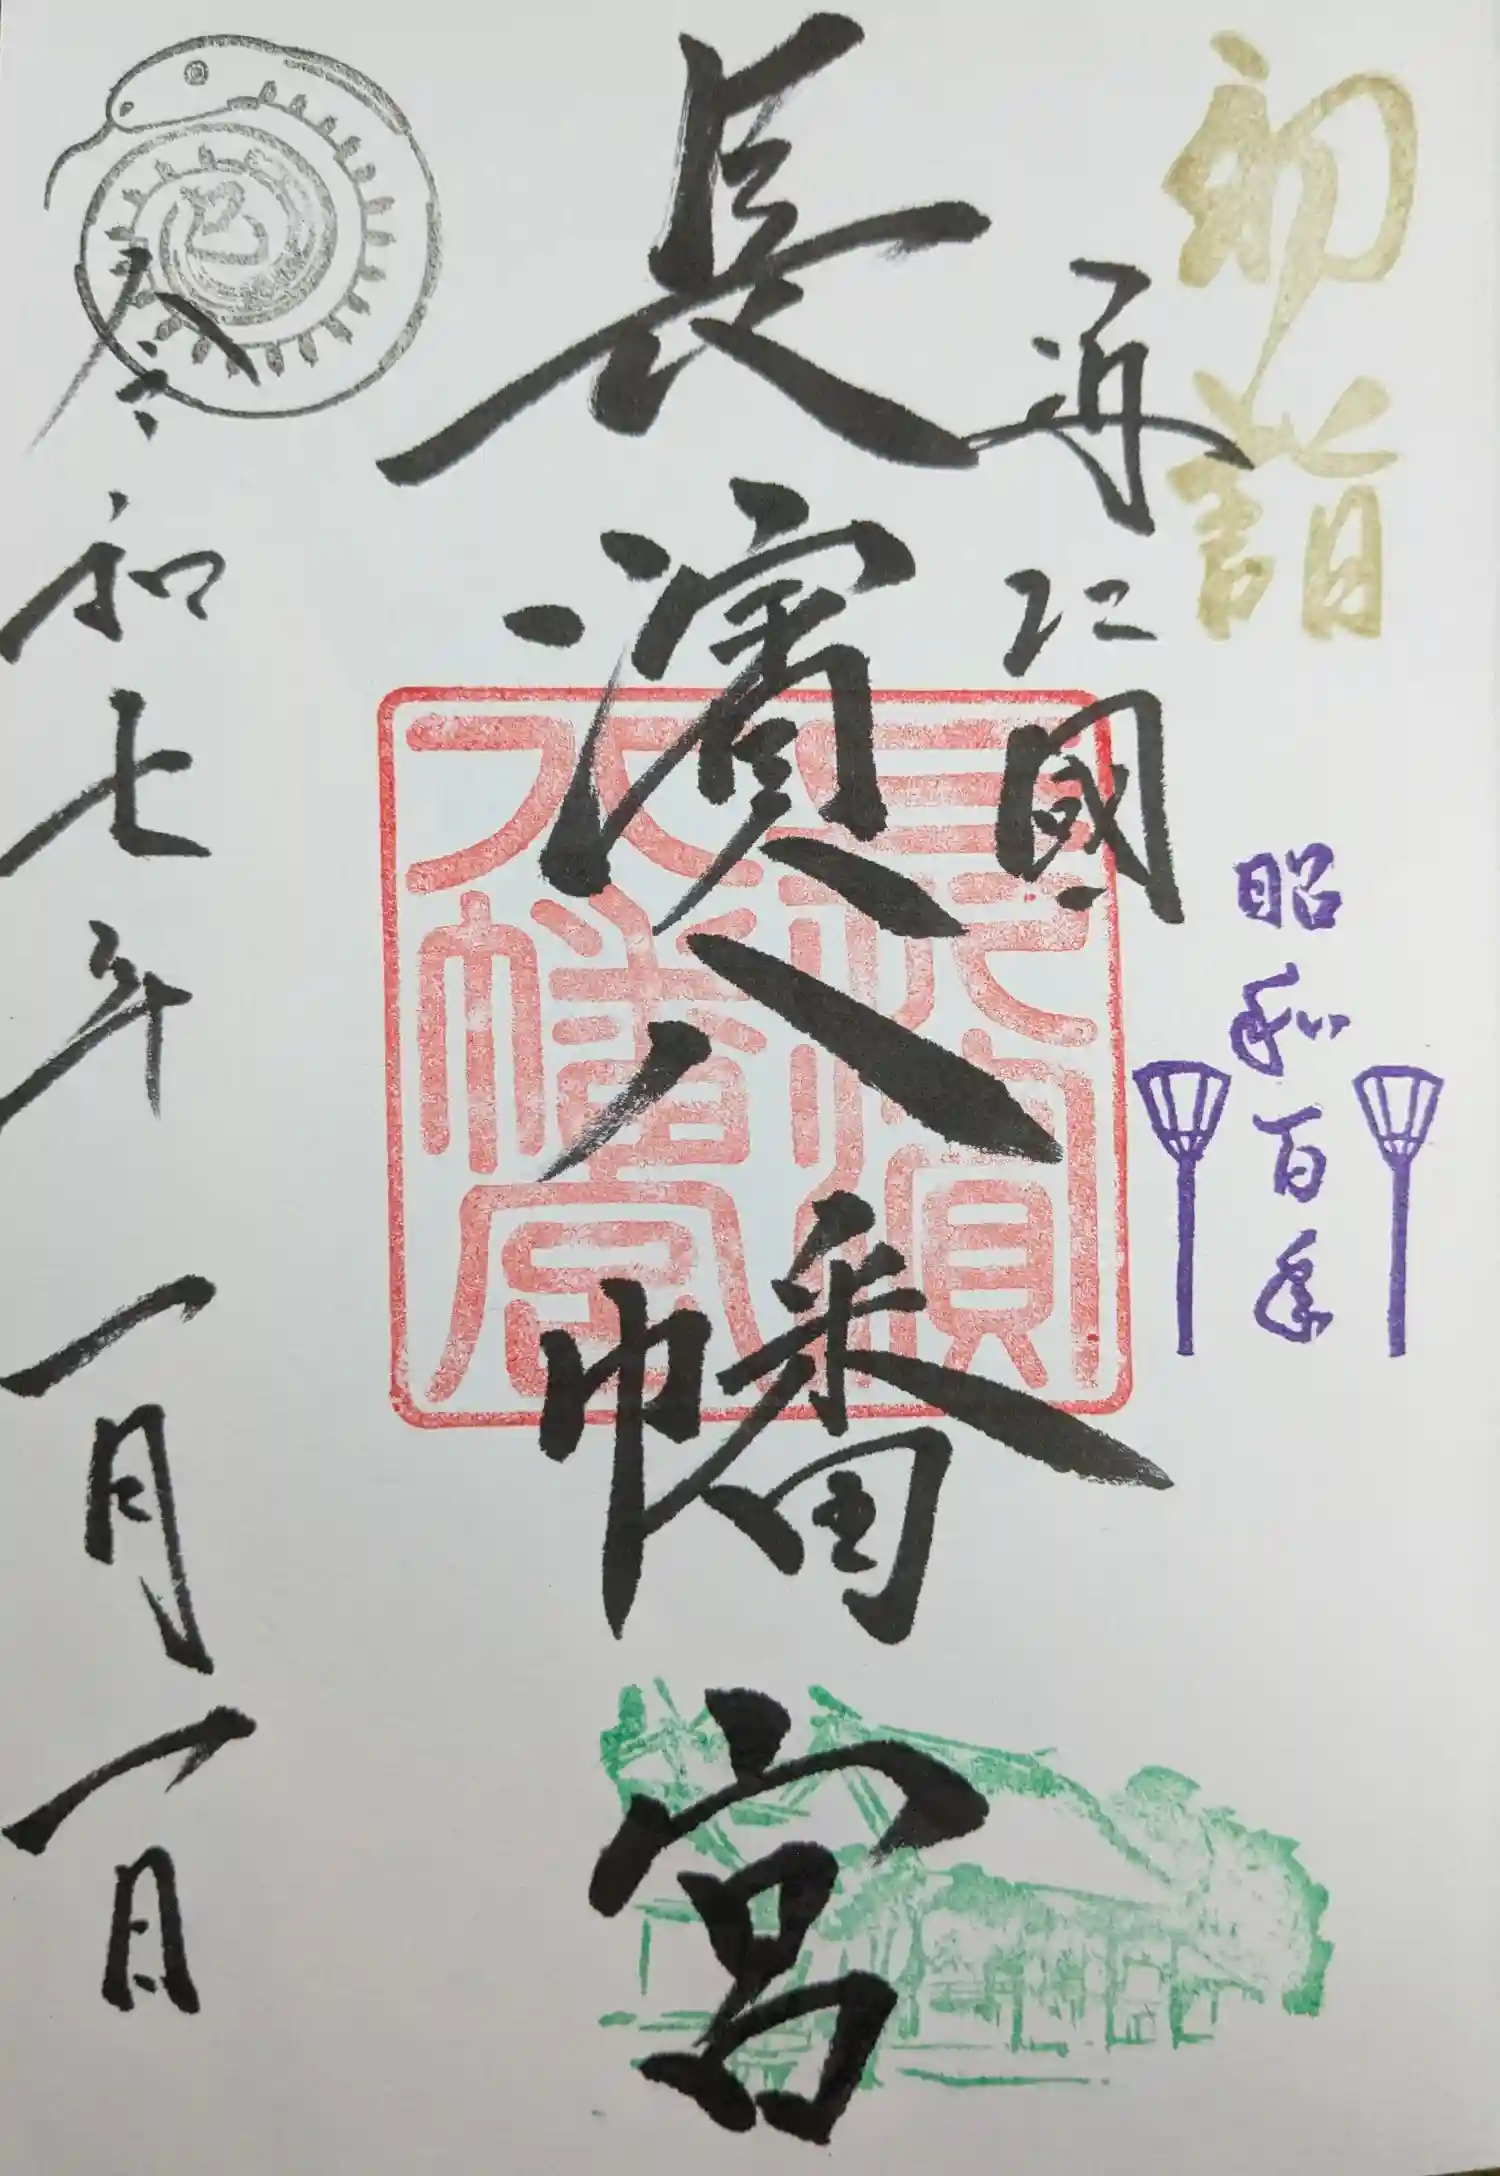 初詣
昭和百年
近江國
長濱八幡宮
長濱
八幡宮
巳
令和七年一月一日